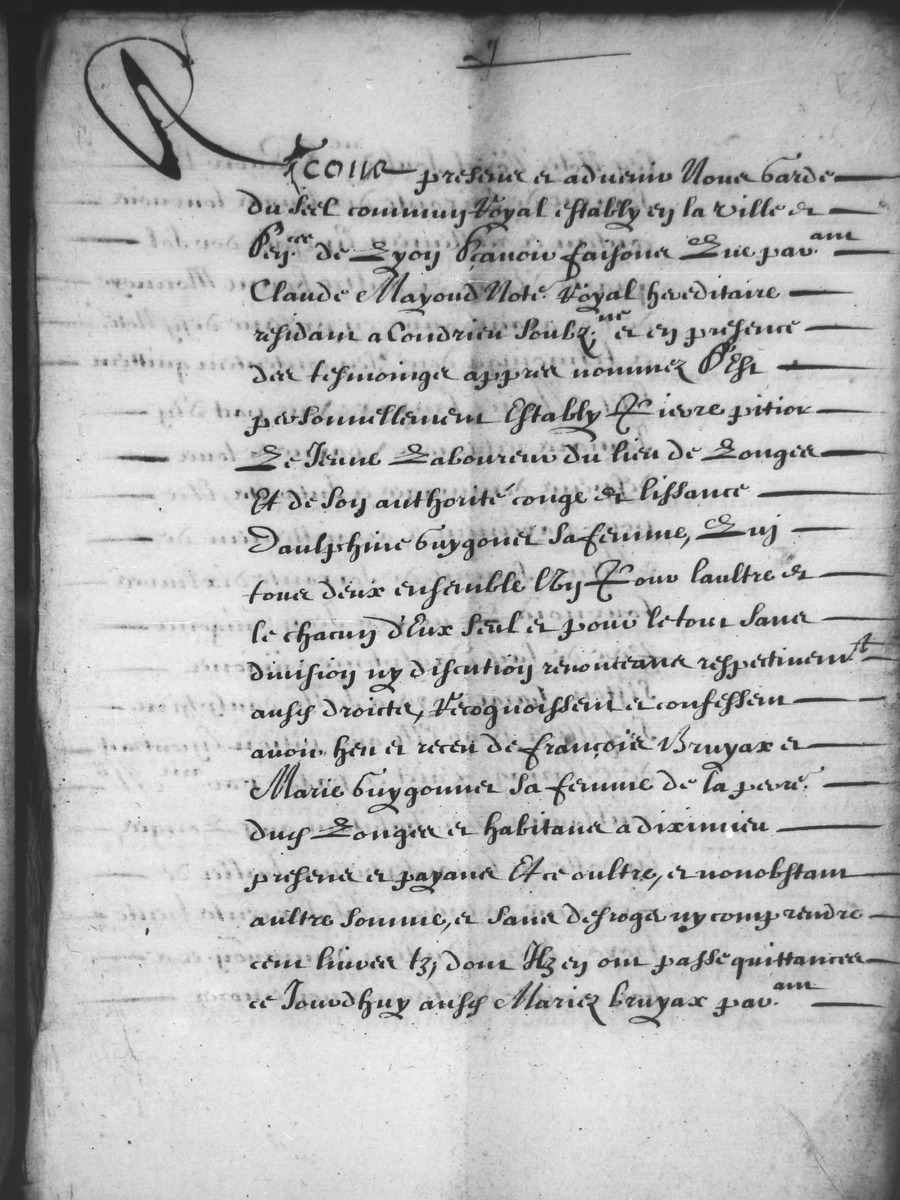 7
A tous presens et advenir Nous Garde
du Seel commun Royal estably en la ville et
Sen.ée de Lyon Sçavoir faisons Que par.ant
Claude Mayoud Not.e Royal hereditaire
residant a Condrieu Soubz.né et en presence
des tesmoings appres nommez S'Est
personnellement Estably Pierre pitiot
Le Jeune Laboureur du lieu de Longes
Et de Son authorité congé et lissance
Daulphine Guygonet Sa femme, Qui
tous deux ensemble l'Un Pour l'aultre et
le chacun d'Eux Seul et pour le tout Sans
division ny discution renonceans respectivem.t
ausd droicts, Recognoissent et confessent
avoir heu et receu de françois Bruyax et
Marie Guygonnet Sa femme de la perre.
dud Longes et habitans a diximieu
presens et payans Et ce oultre, et nonobstant
aultre Somme, et Sans desroger ny comprendre
cent livres tz, dont Ilz en ont passe quittances
ce Jourdhuy ausd Mariez bruyax par.ant